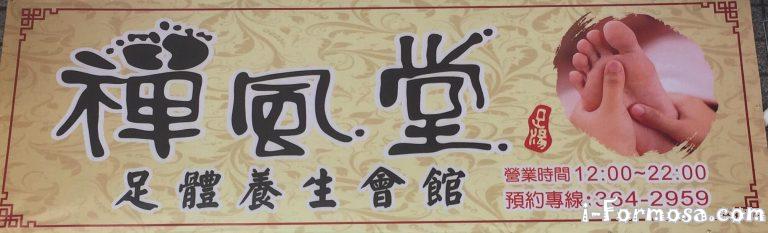 禪風堂
足湯
足體養生會館
營業時間 12:00~22:00
預約專線:364-2959
i-Formosa.com